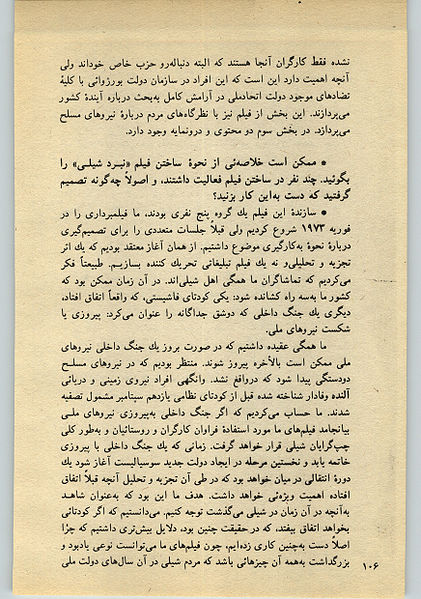 نشده فقط کارگران آنجا هستند که البته دنباله‌رو حزب خاص خوداند ولی
آنچه اهمیت دارد این است که این افراد در سازمان دولت بورژوائی با کلیهٔ
تضادهای موجود دولت اتحادملی در آرامش کامل به‌بحث درباره آیندهٔ کشور
می‌پردازند. این بخش از فیلم نیز با نظرگاه‌های مردم دربارهٔ نیروهای مسلح
می‌پردازد. در بخش سوم دو محتوی و درونمایه وجود دارد.
• ممکن است خلاصه‌ئی از نحوهٔ ساختن فیلم «نبرد شیلی» را
بگوئید. چند نفر در ساختن فیلم فعالیت داشتند، و اصولاً چه‌گونه تصمیم
گرفتید که دست به‌این کار بزنید؟
• سازندهٔ این فیلم یك گروه پنج نفری بودند، ما فیلمبرداری را در
فوریه ۱۹۷۳ شروع کردیم ولی قبلاً جلسات متعددی را برای تصمیم‌گیری
دربارهٔ نحوهٔ به‌کارگیری موضوع داشتیم. از همان آغاز معتقد بودیم که یك اثر
تجزیه و تحلیلی‌و نه یك فیلم تبلیغاتی تحریك کننده بسازیم. طبیعتاً فکر
می‌کردیم که تماشاگران ما همگی اهل شیلی‌اند. در آن زمان ممکن بود که
کشور ما به‌سه راه کشانده شود: یکی کودتای فاشیستی، که واقعاً اتفاق افتاد،
دیگری یك جنگ داخلی که دوشق جداگانه را عنوان می‌کرد: پیروزی یا
شکست نیروهای ملی.
ما همگی عقیده داشتیم که در صورت بروز یك جنگ داخلی نیروهای
ملی ممکن است بالأخره پیروز شوند. منتظر بودیم که در نیروهای مسلح
دودستگی پیدا شود که درواقع نشد. وانگهی افراد نیروی زمینی و دریائی
آلنده وفادار شناخته شده قبل از کودتای نظامی یازدهم سپتامبر مشمول تصفیه
شدند. ما حساب می‌کردیم که اگر جنگ داخلی به‌پیروزی نیروهای ملی
بیانجامد فیلم‌های ما مورد استفادهٔ فراوان کارگران و روستائیان و به‌طور کلی
چپ‌گرایان شیلی قرار خواهد گرفت. زمانی که یك جنگ داخلی با پیروزی
خاتمه یابد و نخستین مرحله در ایجاد دولت جدید سوسیالیست آغاز شود یك
دورهٔ انتقالی در میان خواهد بود که در طی آن تجزیه و تحلیل آنچه قبلاً اتفاق
افتاده اهمیت ویژه‌ئی خواهد داشت. هدف ما این بود که به‌عنوان شاهد
به‌آنچه در آن زمان در شیلی می‌گذشت توجه کنیم. می‌دانستیم که اگر کودتائی
بخواهد اتفاق بیفتد، که درحقیقت چنین بود، دلایل بیش‌تری داشتیم که چرا
اصلاً دست به‌چنین کاری زده‌ایم، چون فیلم‌های ما می‌توانست نوعی یادبود و
بزرگداشت به‌همه آن چیزهائی باشد که مردم شیلی در آن سال‌های دولت ملی
۱۰۶